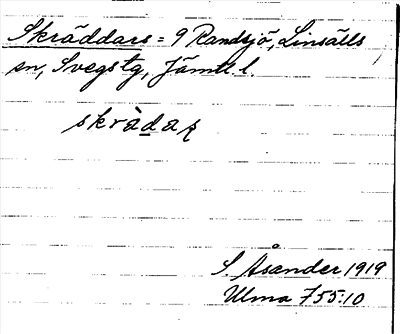 Skräddars = 9 Randsjö, Linsälls
sn, Svegs tg, Jämtl. l.
skràdaʂ
S. Åsander 1919
Ulma 755:10